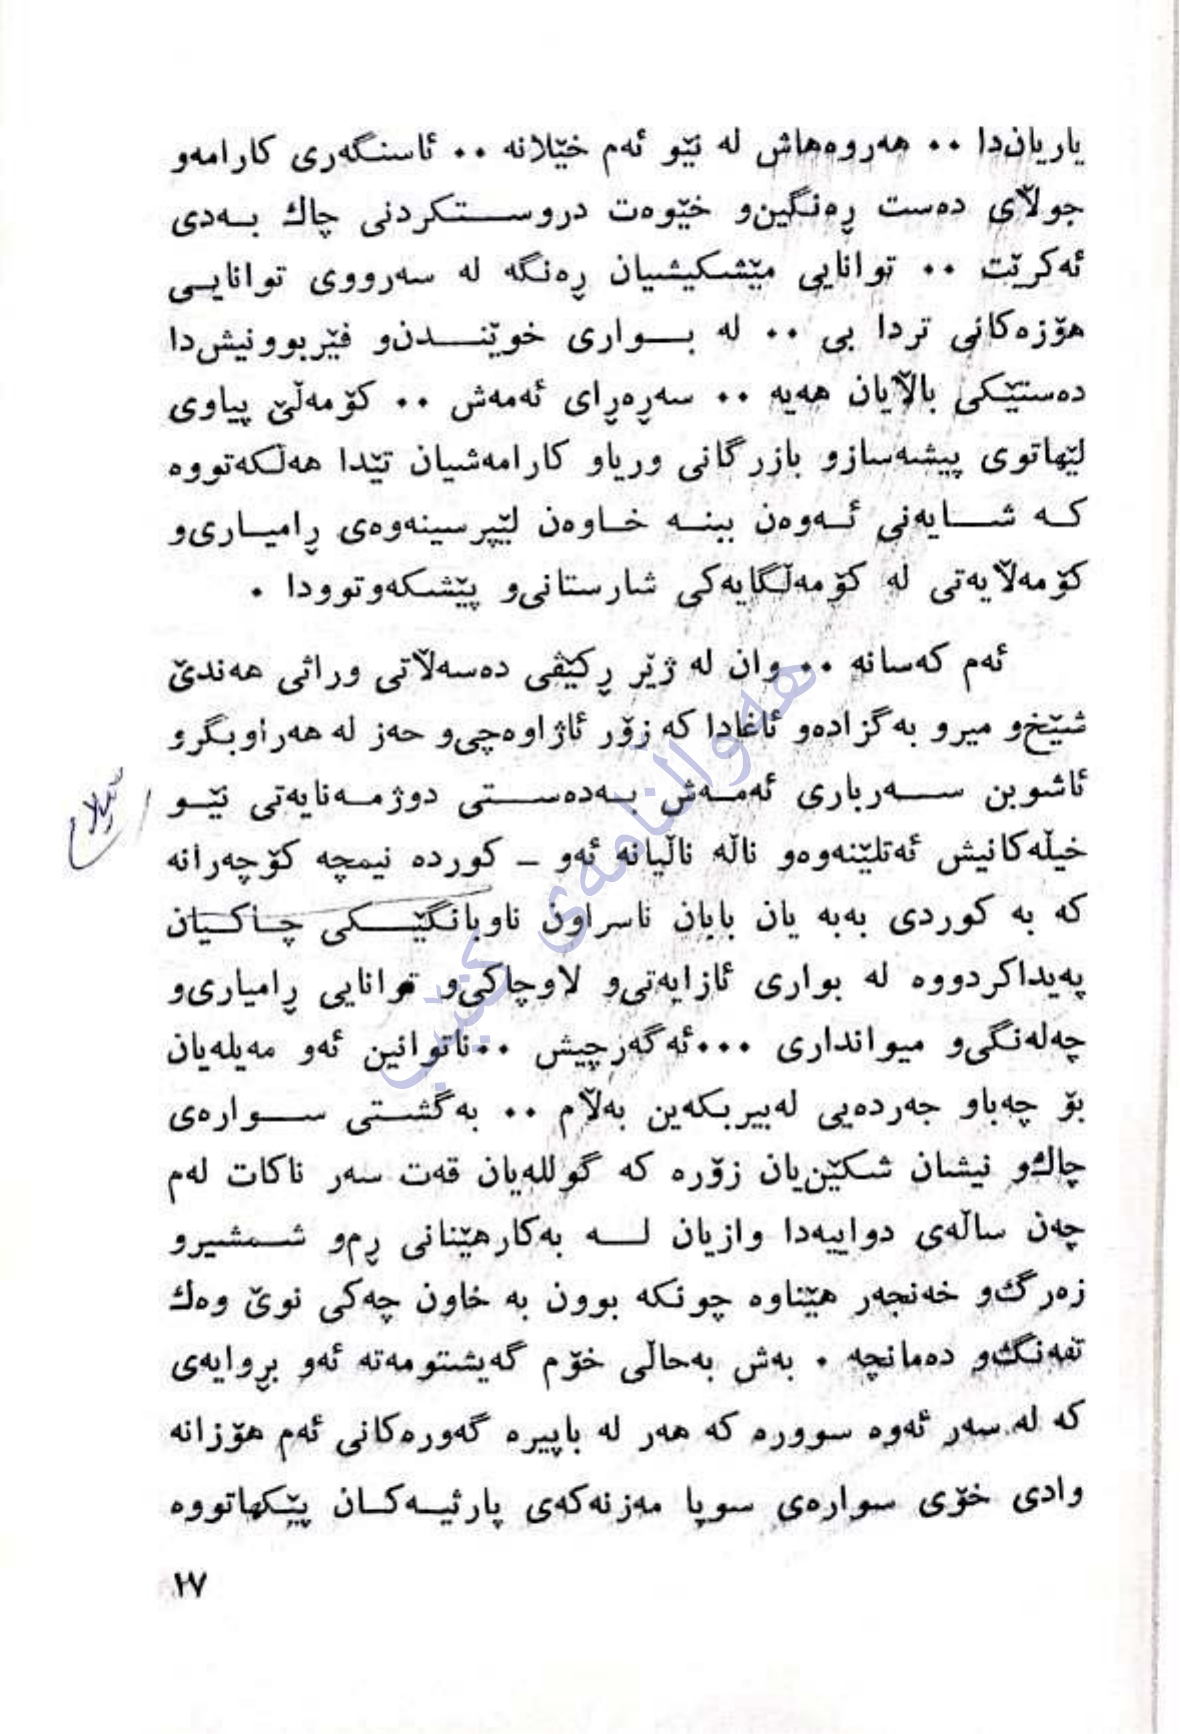 یاریان‌دا ٠٠ هەروەهاش لە نێو ئەم خێلانە ٠٠ ئاسنگەری کارامەو
جولاٚی دەست ڕەنگین‌و خێوەت دروستکردنی چاك بەدی
ئەکرێت ٠٠ توانایی مێشکیشیان ڕەنگە لە سەرووی توانایی
هۆزەکانی تردا بی ٠٠ لە بواری خوێندن‌و فێربوونیش‌دا
دەستێکی بالاٚیان هەیە ٠٠ سەڕەڕای ئەمەش ٠٠ کۆمەڵێ پیاوی
لێهاتوی پیشەسازو بازرگانی وریاو کارامەشیان تێدا هەڵکەتووە
کە شایەنی ئەوەن ببنە خاوەن لێپرسینەوەی ڕامیاری‌و
کۆمەلاٚیەتی لە کۆمەڵگایەکی شارستانی‌و پێشکەوتوودا ٠
ئەم کەسانە ٠٠ وان لە ژێر ڕکێفی دەسەلاٚتی وراثی هەندێ
شێخ‌و میرو بەگزادەو ئاغادا کە زۆر ئاژاوەچی‌و حەز لە هەراوبگرو
ئاشوبن سەرباری ئەمەش بەدەستی دوژمەنایەتی نێو
خیڵەکانیش ئەتلێنەوەو ناڵە ناڵیانە ئەو ـ کوردە نیمچە کۆچەرانە
کە بە کوردی بەبە یان بابان ناسراون ناوبانگێکی چاکیان
پەیداکردووە لە بواری ئازایەتی‌و لاوچاکی‌و توانایی ڕامیاری‌و
چەلەنگی‌و میوانداری ٠٠٠ئەگەرچیش ٠٠ناتوانین ئەو مەیلەیان
بۆ چەباو جەردەیی لەبیربکەین بەلاٚم ٠٠ بەگشتی سوارەی
چاك‌و نیشان شکێن‌یان زۆرە کە گوللەیان قەت سەر ناکات لەم
چەن ساڵەی دواییەدا وازیان لە بەکارهێنانی ڕم‌و شمشیرو
زەرگ‌و خەنجەر هێناوە چونکە بوون بە خاون چەکی نوێ وەك
تفەنگ‌و دەمانچە ٠ بەش بەحاڵی خۆم گەیشتومەتە ئەو بڕوایەی
کە لە سەر ئەوە سوورە کە هەر لە باپیرە گەورەکانی ئەم هۆزانە
وادی خۆی سوارەی سوپا مەزنەکەی پارثیەکان پێکهاتووە
٢٧
هەواڵنامەی کتێب